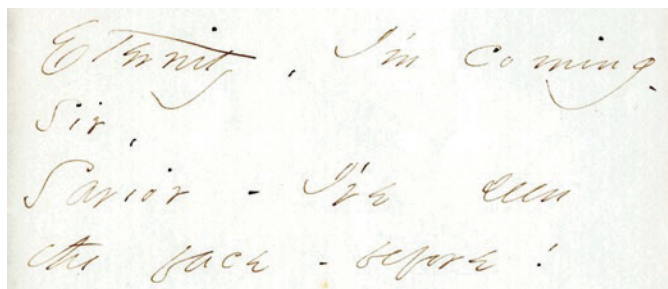 Eternity, I'm coming
Sir,
Savior - I've seen
the face - before!